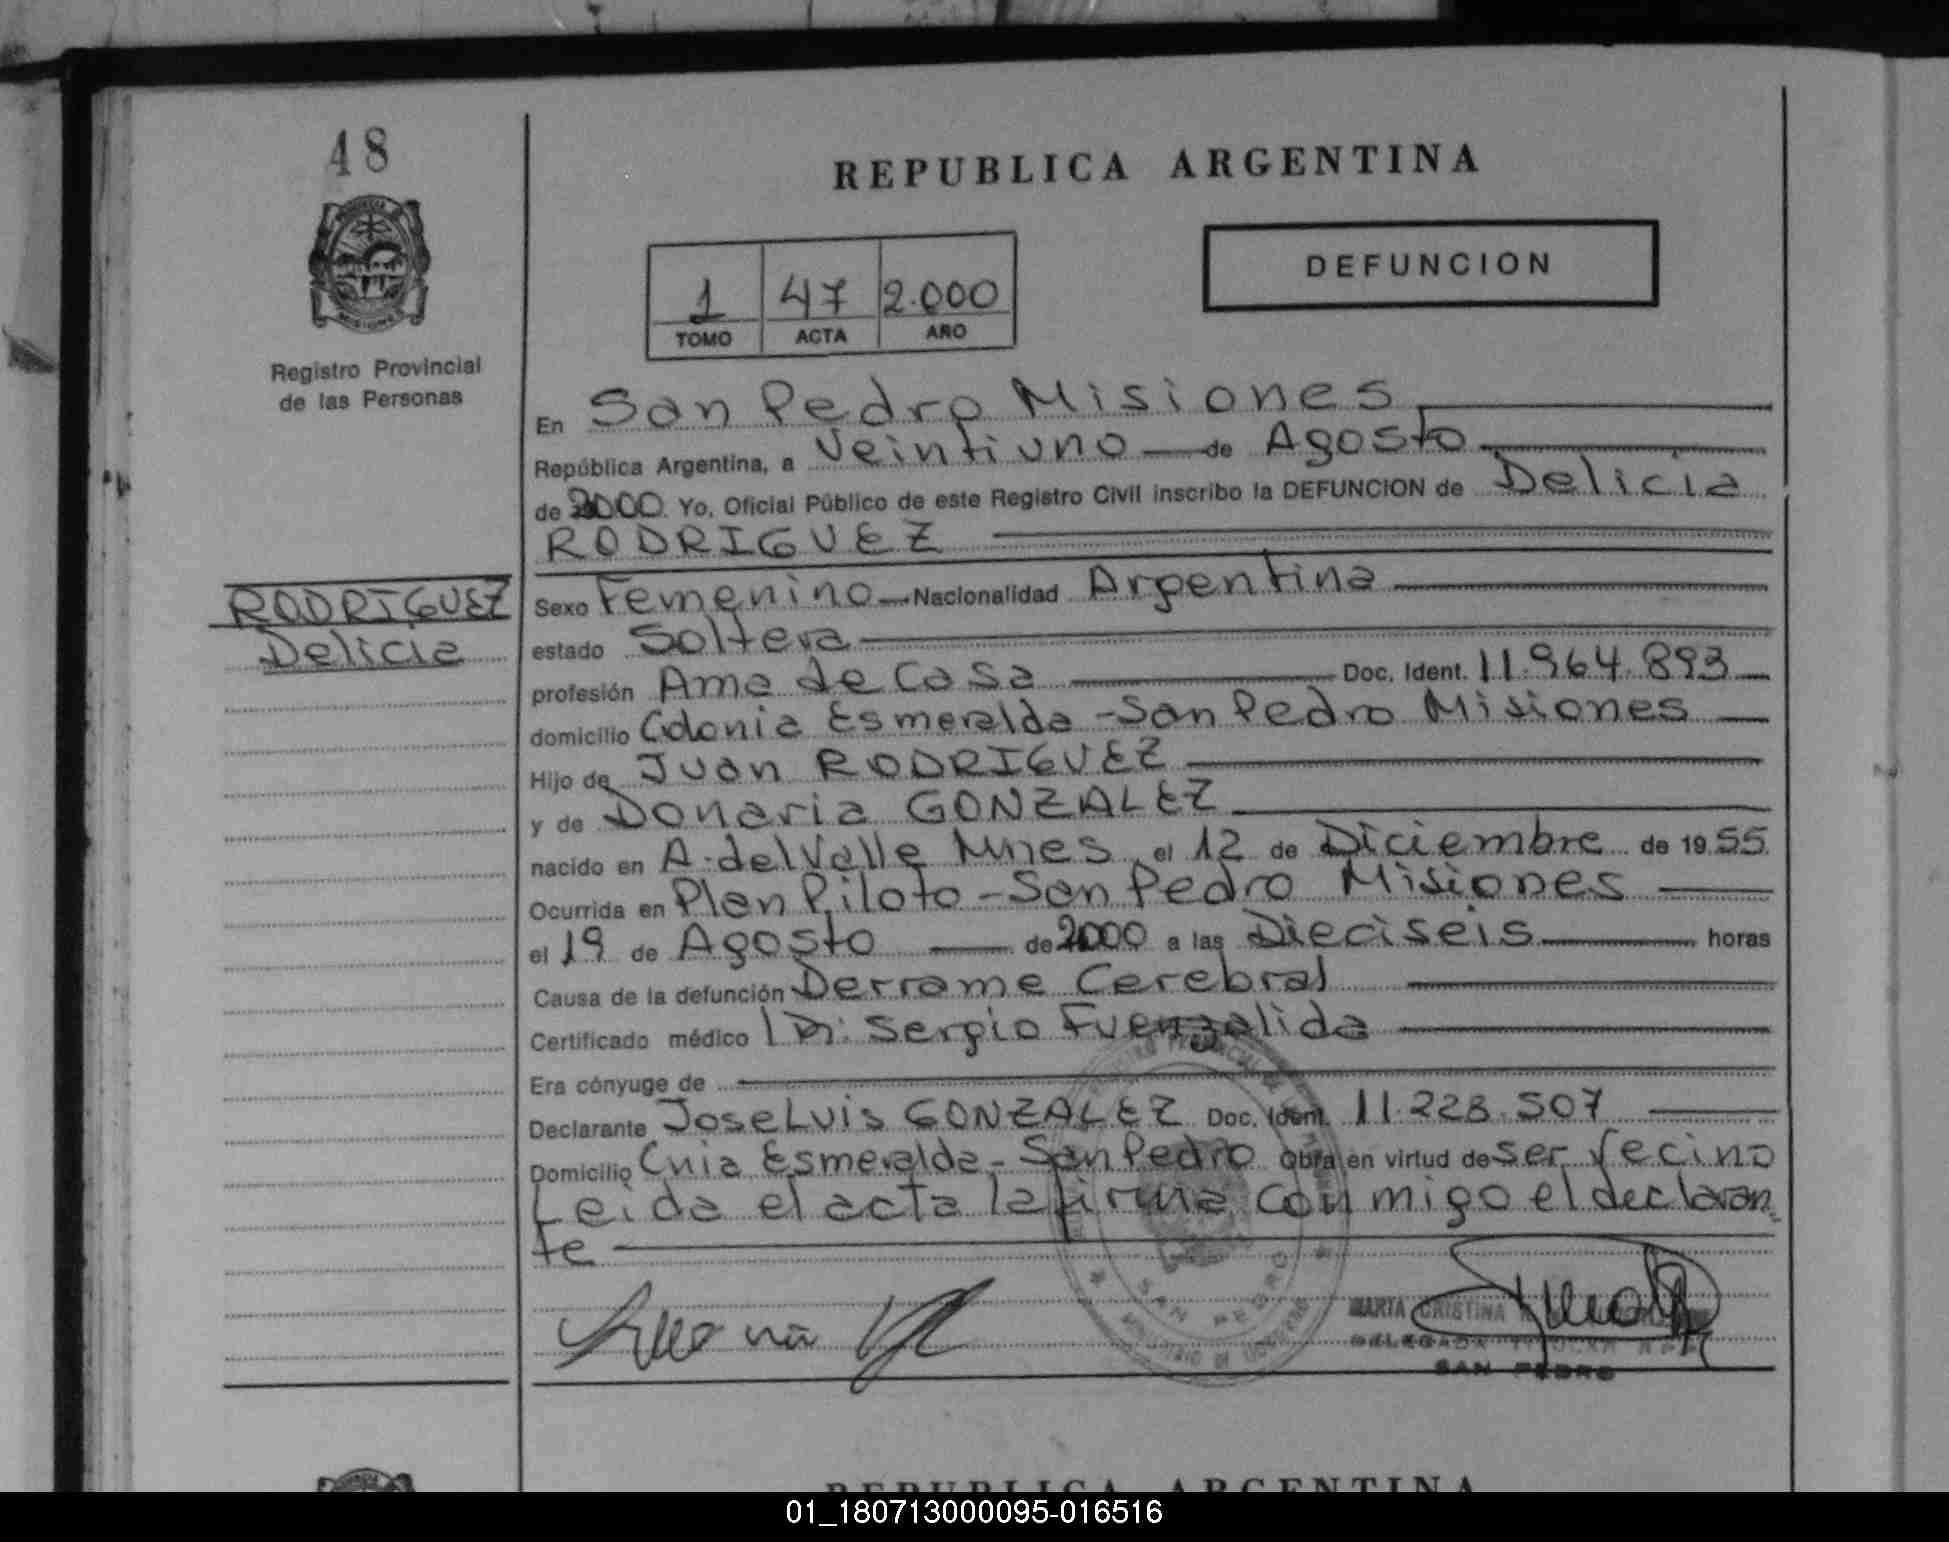 48
REPUBLICA ARGENTINA
DEFUNCION
1 47 2.000
TOMO ACTA AÑO
Registro Provincial
de las Personas
RODRIGUEZ
Delicia
En San Pedro Misiones
República Argentina, a Veintiuno de Agosto
de 2000 Yo, Oficial Público de este Registro Civil inscribo la DEFUNCION de Delicia
RODRIGUEZ
Sexo Femenino Nacionalidad Argentina
estado Soltera
profesión Ama de Casa Doc. Ident. 11.964.893
domicilio Colonia Esmeralda - San Pedro Misiones
Hijo de Juan RODRIGUEZ
y de Donaria GONZALEZ
nacido en A. del Valle Mnes el 12 de Diciembre de 1955
Ocurrida en Plan Piloto - San Pedro Misiones
el 19 de Agosto de 2000 a las Dieciseis horas
Causa de la defunción Derrame Cerebral
Certificado médico Dr. Sergio Fuenzalida
Era cónyuge de
Declarante Jose Luis GONZALEZ Doc. Ident. 11.228.507
Domicilio Cnia Esmeralda - San Pedro Obra en virtud de ser Vecino
Leida el acta la firma conmigo el declaran
te
SAN PEDRO
MARTA CRISTINA
DELEGADA TITULAR
SAN PEDRO
REPUBLICA ARGENTINA
01_180713000095-016516